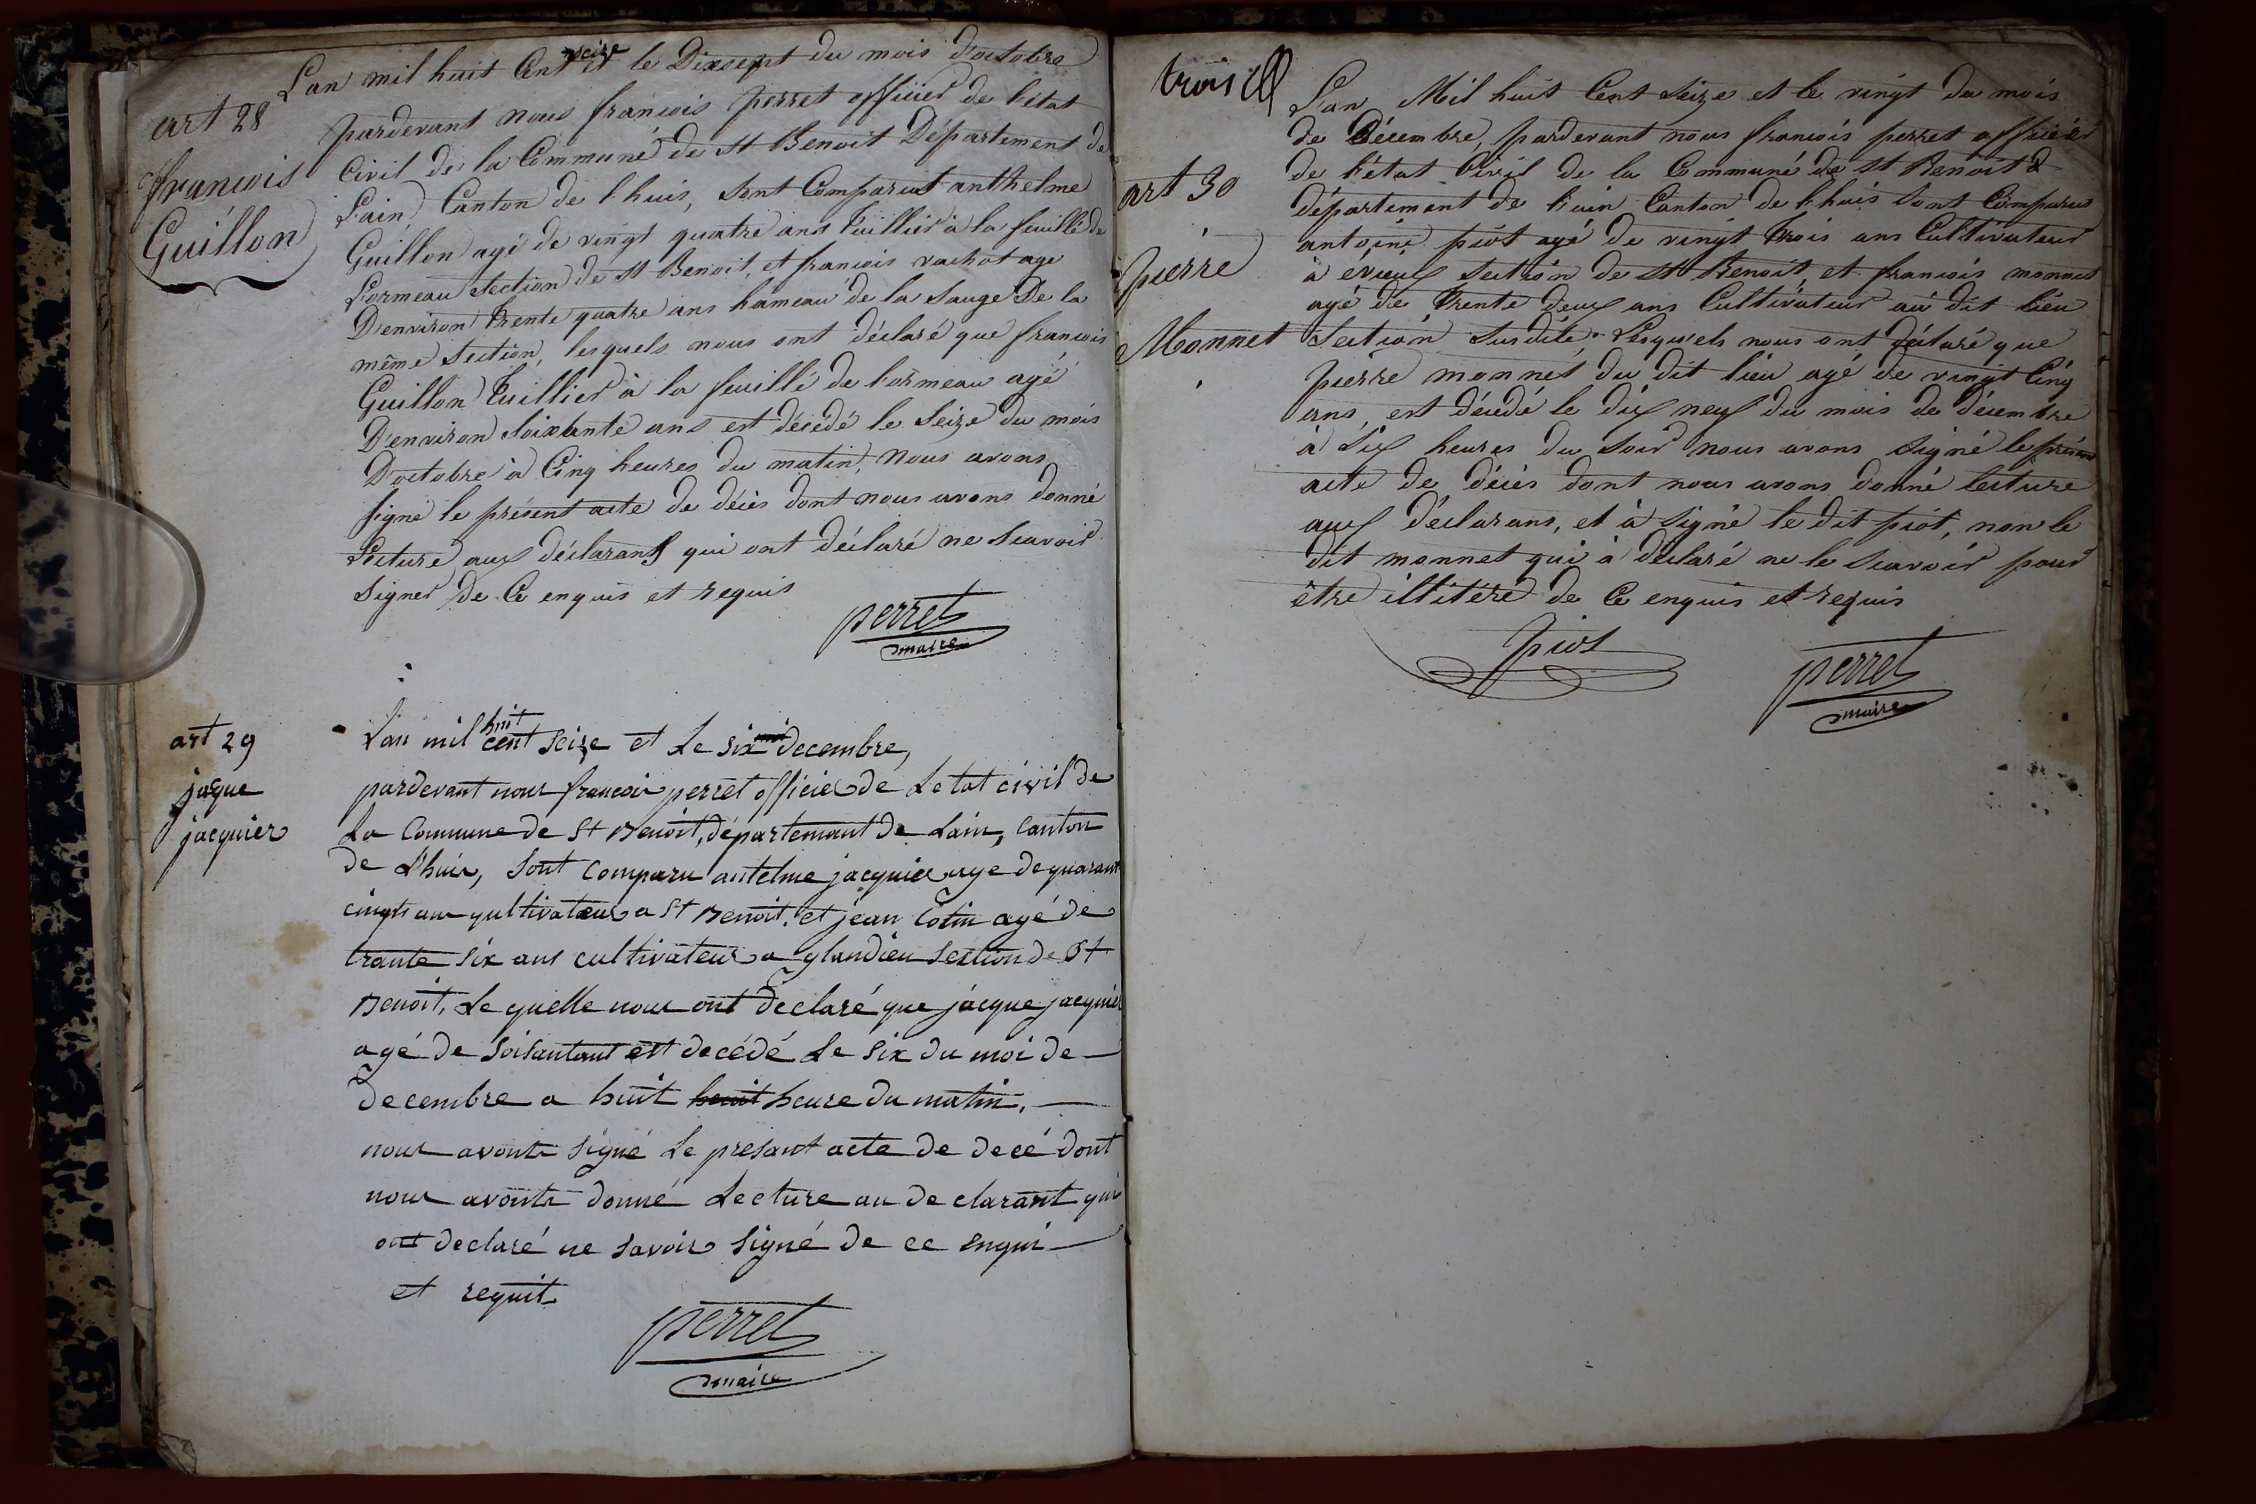 art 28
françois
Guillon
L'an mil huit Cent seize et le Dixsept du mois d'octobre
pardevant nous françois perret officier de l'état
Civil de la Commune de St Benoit Département de
L'ain Canton de l'huis, sont Comparut anthelme
Guillon agé de vingt quatre ans tuillier à la feuillé de
L'ormeau section de St Benoit, et françois rachot age
D'environ trente quatre ans hameau de la Sauge De la
même section, lesquels nous ont déclaré que françois
Guillon tuillier à la feuillé de l'ormeau agé
D'environ soixante ans est décédé le seize du mois
D'octobre à Cinq heures du matin, nous avons
signé le présent acte de décès dont nous avons donné
Lecture aux déclarans qui ont déclaré ne scavoir
signer de Ce enquis et requis
perret
maire
art 29
jaque
jacquier
L'an mil huit cent seize et Le six decembre,
pardevant nous françois perret officier de Letat civil de
La Commune de St Benoit, département de Lain, Canton
de L'huis, sont comparu antelme jacquier age de quarante
cinqts ans qultivateur a St Benoit. et jean Cotin agé de
trante six ans cultivateur a glandieu Section de St
Benoit, Le quelle nous ont declaré que jacque jacquier
agé de soisantans est decédé Le six du moi de
decembre a huit huit heure du matin.
nous avonts signé Le presant acte de decé dont
nous avonts donné Lecture au declarant qui
ont declaré ne savoir signé de ce enqui
et requit
perret
maire
trois
art 30
pierre
Monnet
L'an Mil huit Cent seize et le vingt du mois
de Décembre, pardevant nous françois perret officier
de l'état Civil de la Commune de St Benoit
département de l'ain Canton de l'huis sont Comparus
antoine piot agé de vingt trois ans Cultivateur
à évieux section de St Benoit, et françois monnet
agé de trente deux ans Cultivateur au dit lieu
section susdite. Lesquels nous ont déclaré que
pierre monnet du dit lieu agé de vingt Cinq
ans, est décédé le dix neuf du mois de décembre
à six heures du soir nous avons signé le présent
acte de décès dont nous avons donné lecture
aux déclarans, et à signé le dit piot, non le
dit monnet qui à déclaré ne le scavoir pour
être illitéré de Ce enquis et requis
piot
perret
maire